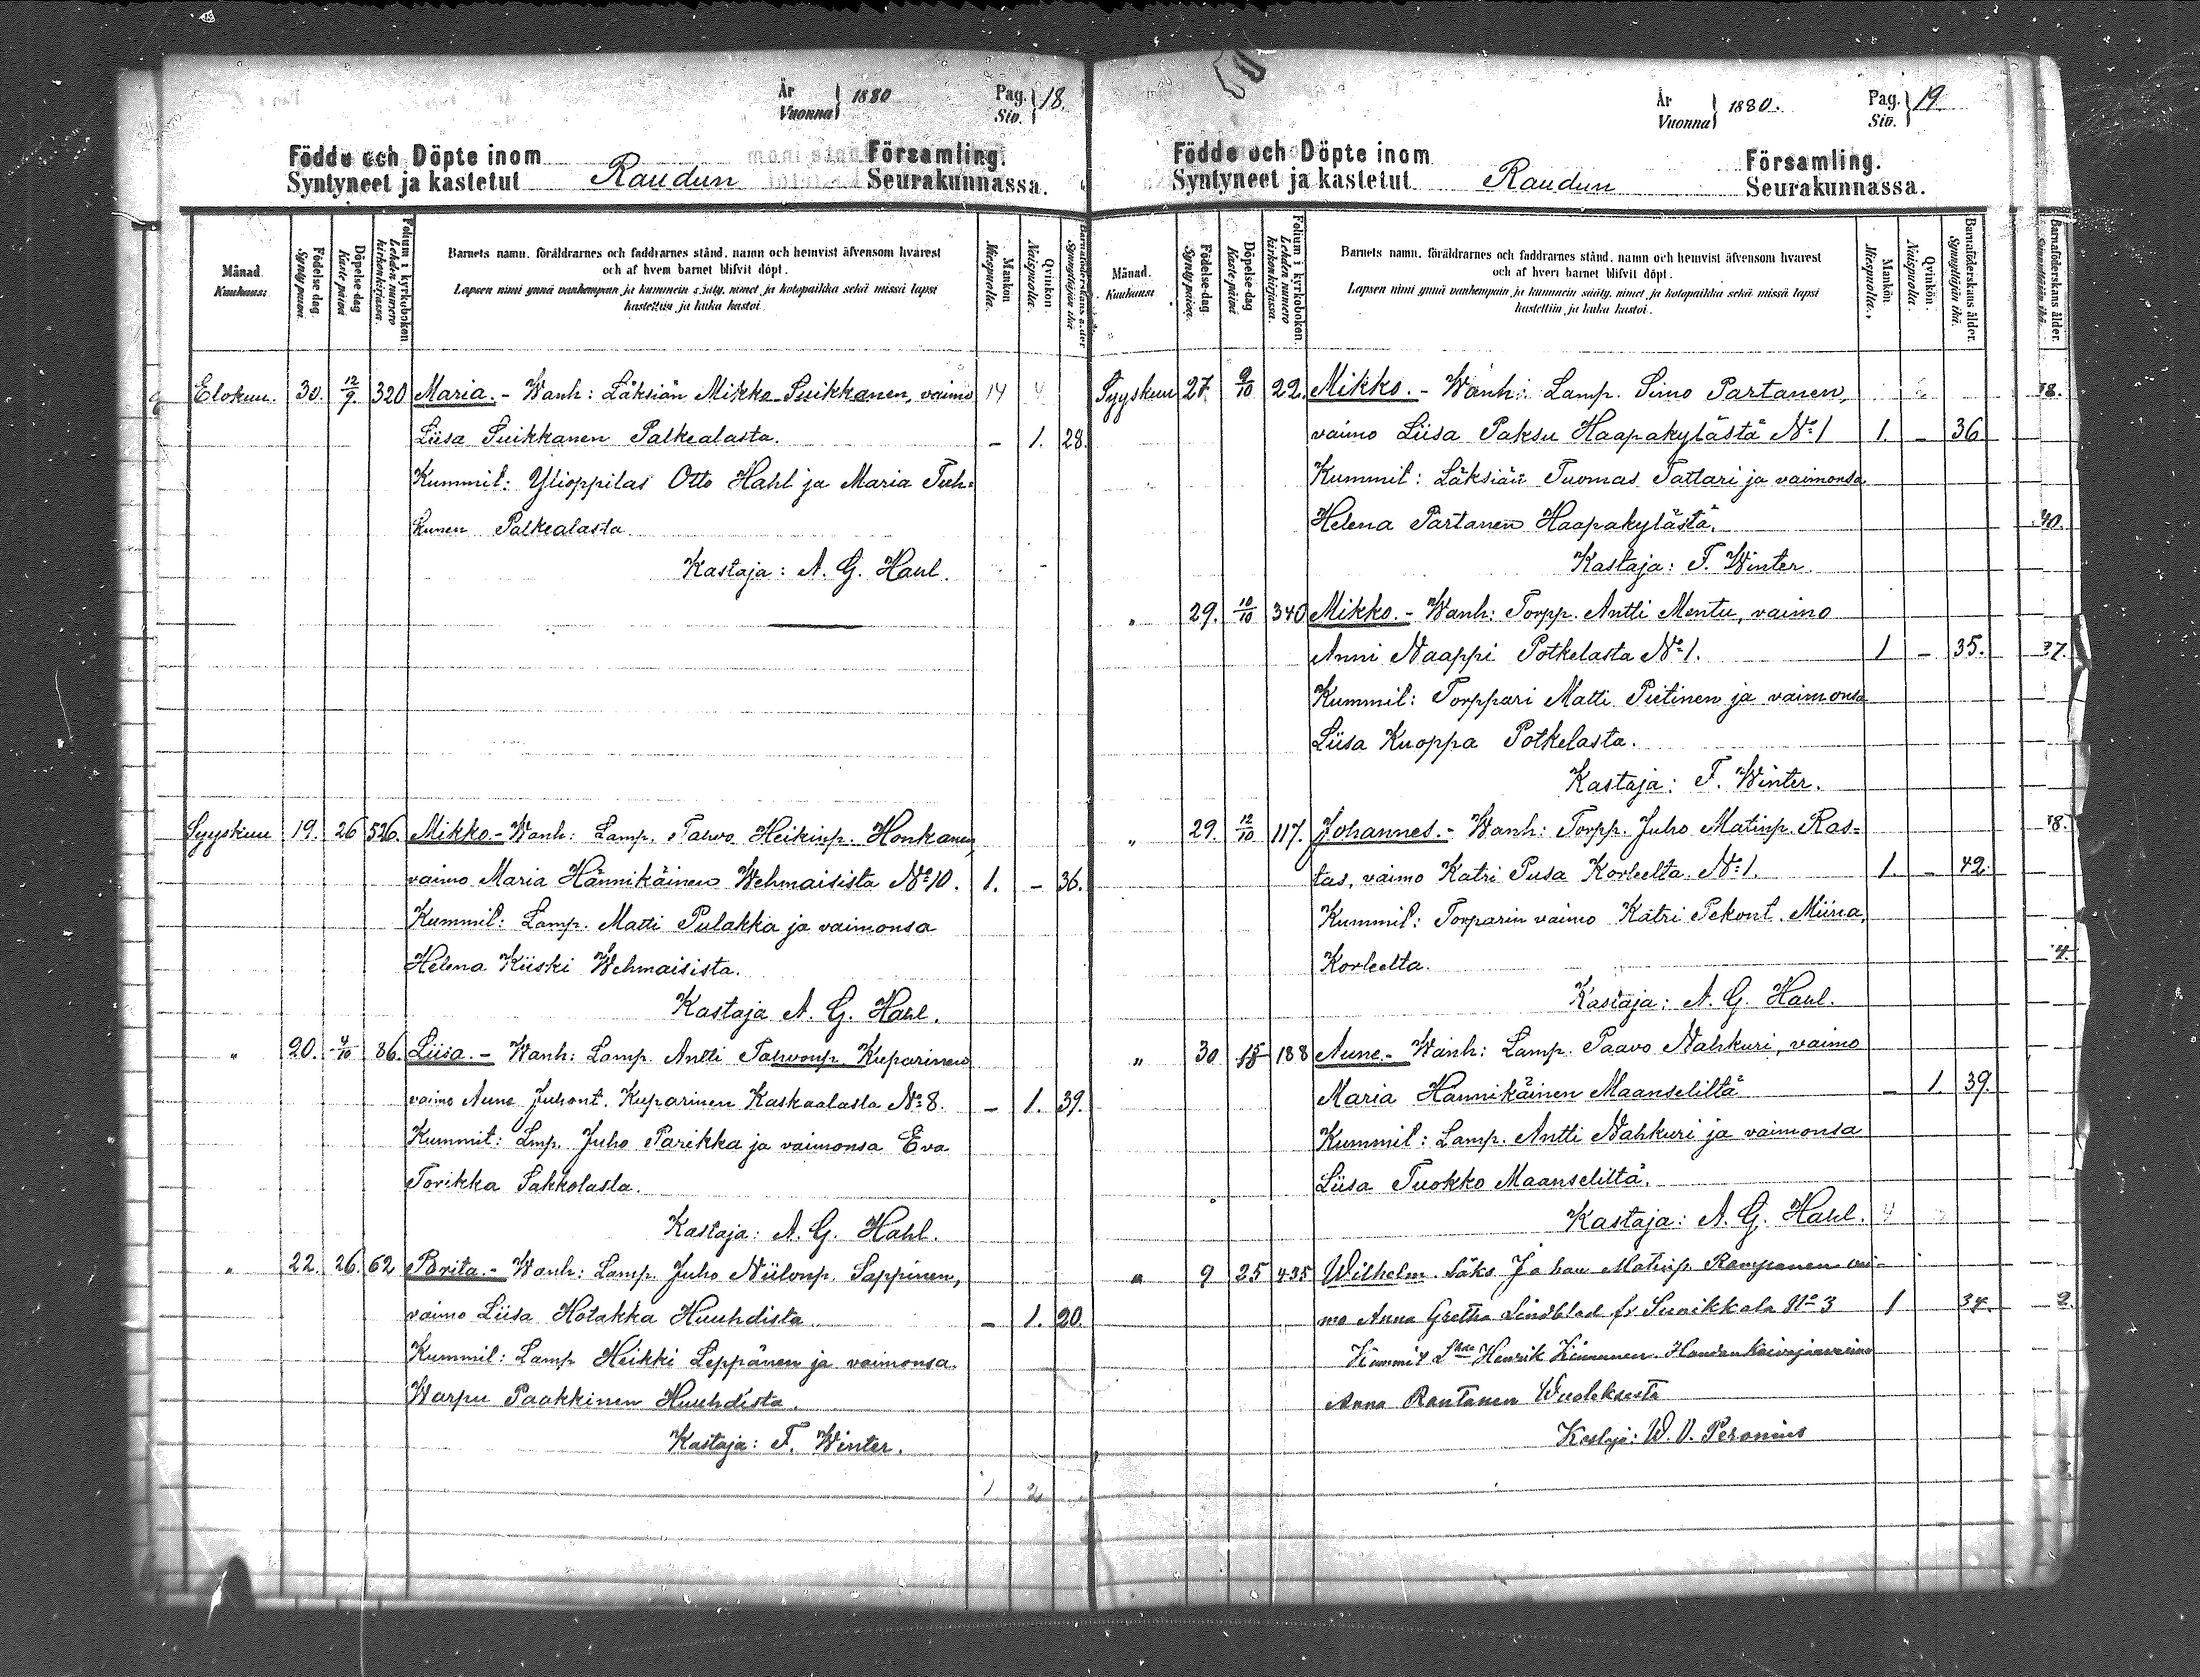 År
Vuonna } 1880 Pag. Siv. } 18.
Födde och Döpte inom Församling.
Syntyneet ja kastetut Raudun Seurakunnassa.
Månad. Kuukausi
Födelse dag. Syntypäivä.
Döpelse dag Kaste päivä
Folium i kyrkoboken Lehden numero kirkonkirjassa.
Barnets namn, föräldrarnes och faddrarnes stånd, namn och hemvist äfvensom hvarest
och af hvem barnet blifvit döpt.
Lapsen nimi ynnä vanhempain ja kummein sääty, nimet ja kotopaikka sekä missä lapsi
kastettiin ja kuka kastoi.
Mankön Miespuolia.
Qvinkön. Naispuolia.
Barnaföderskans ålder Synnyttäjän ikä
Elokuu. 30. 12/9. 320 Maria. - Wanh: Läksiän Mikko Suikkanen, vaimo
Liisa Suikkanen Palkealasta. - 1. 28.
Kummit: Ylioppilas Otto Hahl ja Maria Tuh-
kunen Palkealasta
Kastaja: A. G. Hahl.
Syyskuu 19. 26 526. Mikko. - Wanh: Lamp. Paavo Heikinp. Honkanen,
vaimo Maria Hännikäinen Wehmaisista No 10. 1. - 36.
Kummit: Lamp. Matti Pulakka ja vaimonsa
Helena Kiiski Wehmaisista.
Kastaja A. G. Hahl.
" 20. 4/10 86. Liisa. - Wanh: Lamp. Antti Paavonp. Kuparinen
vaimo Aune Juhont. Kuparinen Kaskaalasta No 8. - 1. 39.
Kummit: Lmp. Juho Parikka ja vaimonsa Eva
Torikka Sakkolasta.
Kastaja: A. G. Hahl.
" 22. 26. 62 Brita. - Wanh: Lamp. Juho Niilonp. Sappinen,
vaimo Liisa Hotakka Huuhdista - 1. 20.
Kummit: Lamp Heikki Leppänen ja vaimonsa
Warpu Paakkinen Huuhdista.
Kastaja: F. Winter.
1 2
År
Vuonna } 1880. Pag. Siv. } 19.
Födde och Döpte inom Församling.
Syntyneet ja kastetut Raudun Seurakunnassa.
Månad. Kuukausi
Födelse-dag Syntypäivä.
Döpelse-dag Kaste päivä
Folium i kyrkoboken Lehden numero kirkonkirjassa.
Barnets namn, föräldrarnes och faddrarnes stånd, namn och hemvist äfvensom hvarest
och af hvem barnet blifvit döpt.
Lapsen nimi ynnä vanhempain ja kummein sääty, nimet ja kotopaikka sekä missä lapsi
kastettiin ja kuka kastoi.
Mankön. Miespuolia.
Qvinkön. Naispuolia
Barnaföderskans ålder. Synnyttäjän ikä.
Syyskuu 27. 9/10 22. Mikko. - Wanh: Lamp. Simo Partanen,
vaimo Liisa Paksu Haapakylästä No 1 1. - 36
Kummit: Läksiän Tuomas Tattari ja vaimonsa
Helena Partanen Haapakylästä.
Kastaja: F. Winter
" 29. 10/10 340 Mikko. - Wanh: Torpp. Antti Mentu, vaimo
Anni Naappi Potkelasta No 1. 1 - 35.
Kummit: Torppari Matti Piitinen ja vaimonsa
Liisa Kuoppa Potkelasta.
Kastaja: F. Winter.
" 29. 12/10 117. Johannes. - Wanh: Torpp. Juho Matinp. Ras-
tas, vaimo Katri Pusa Korleelta. No 1. 1. - 42.
Kummit: Torparin vaimo Katri Pekont. Miina,
Korleelta.
Kastaja: A. G. Hahl.
" 30 188 Aune. - Wanh: Lamp. Paavo Nahkuri, vaimo
Maria Hännikäinen Maanseliltä - 1. 39.
Kummit: Lamp. Antti Nahkuri ja vaimonsa
Liisa Tuokko Maanseliltä.
Kastaja: A. G. Hahl.
" 9 25 435 Wilhelm. Läks. Johan Matinp. Rampanen vai-
mo Anna Gretha Lindblad fr Suvikkala No 3 1 34.
Kummit Henrik Kinnunen Haudankaivajanvaimo
Anna Rantanen Wuoleksesta
Kastaja: W. V. Peronius